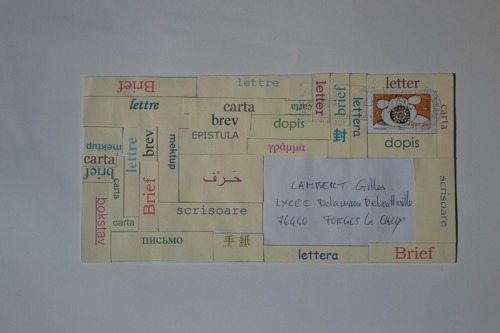 Brief
lettre
letter
brief
letter
lettre
carta
carta
lettera
carta
brev
dopis
EPISTULA
封
dopis
mektup
lettre
brev
mektup
γράμμα
carta
brief
carta
Brief
حَرْف
LAMBERT Gilles.
LYCÉE Delamare Deboutteville
76440 FORGES Le
scrisoare
scrisoare
bokstav
carta
письмо
手紙
lettera
Brief